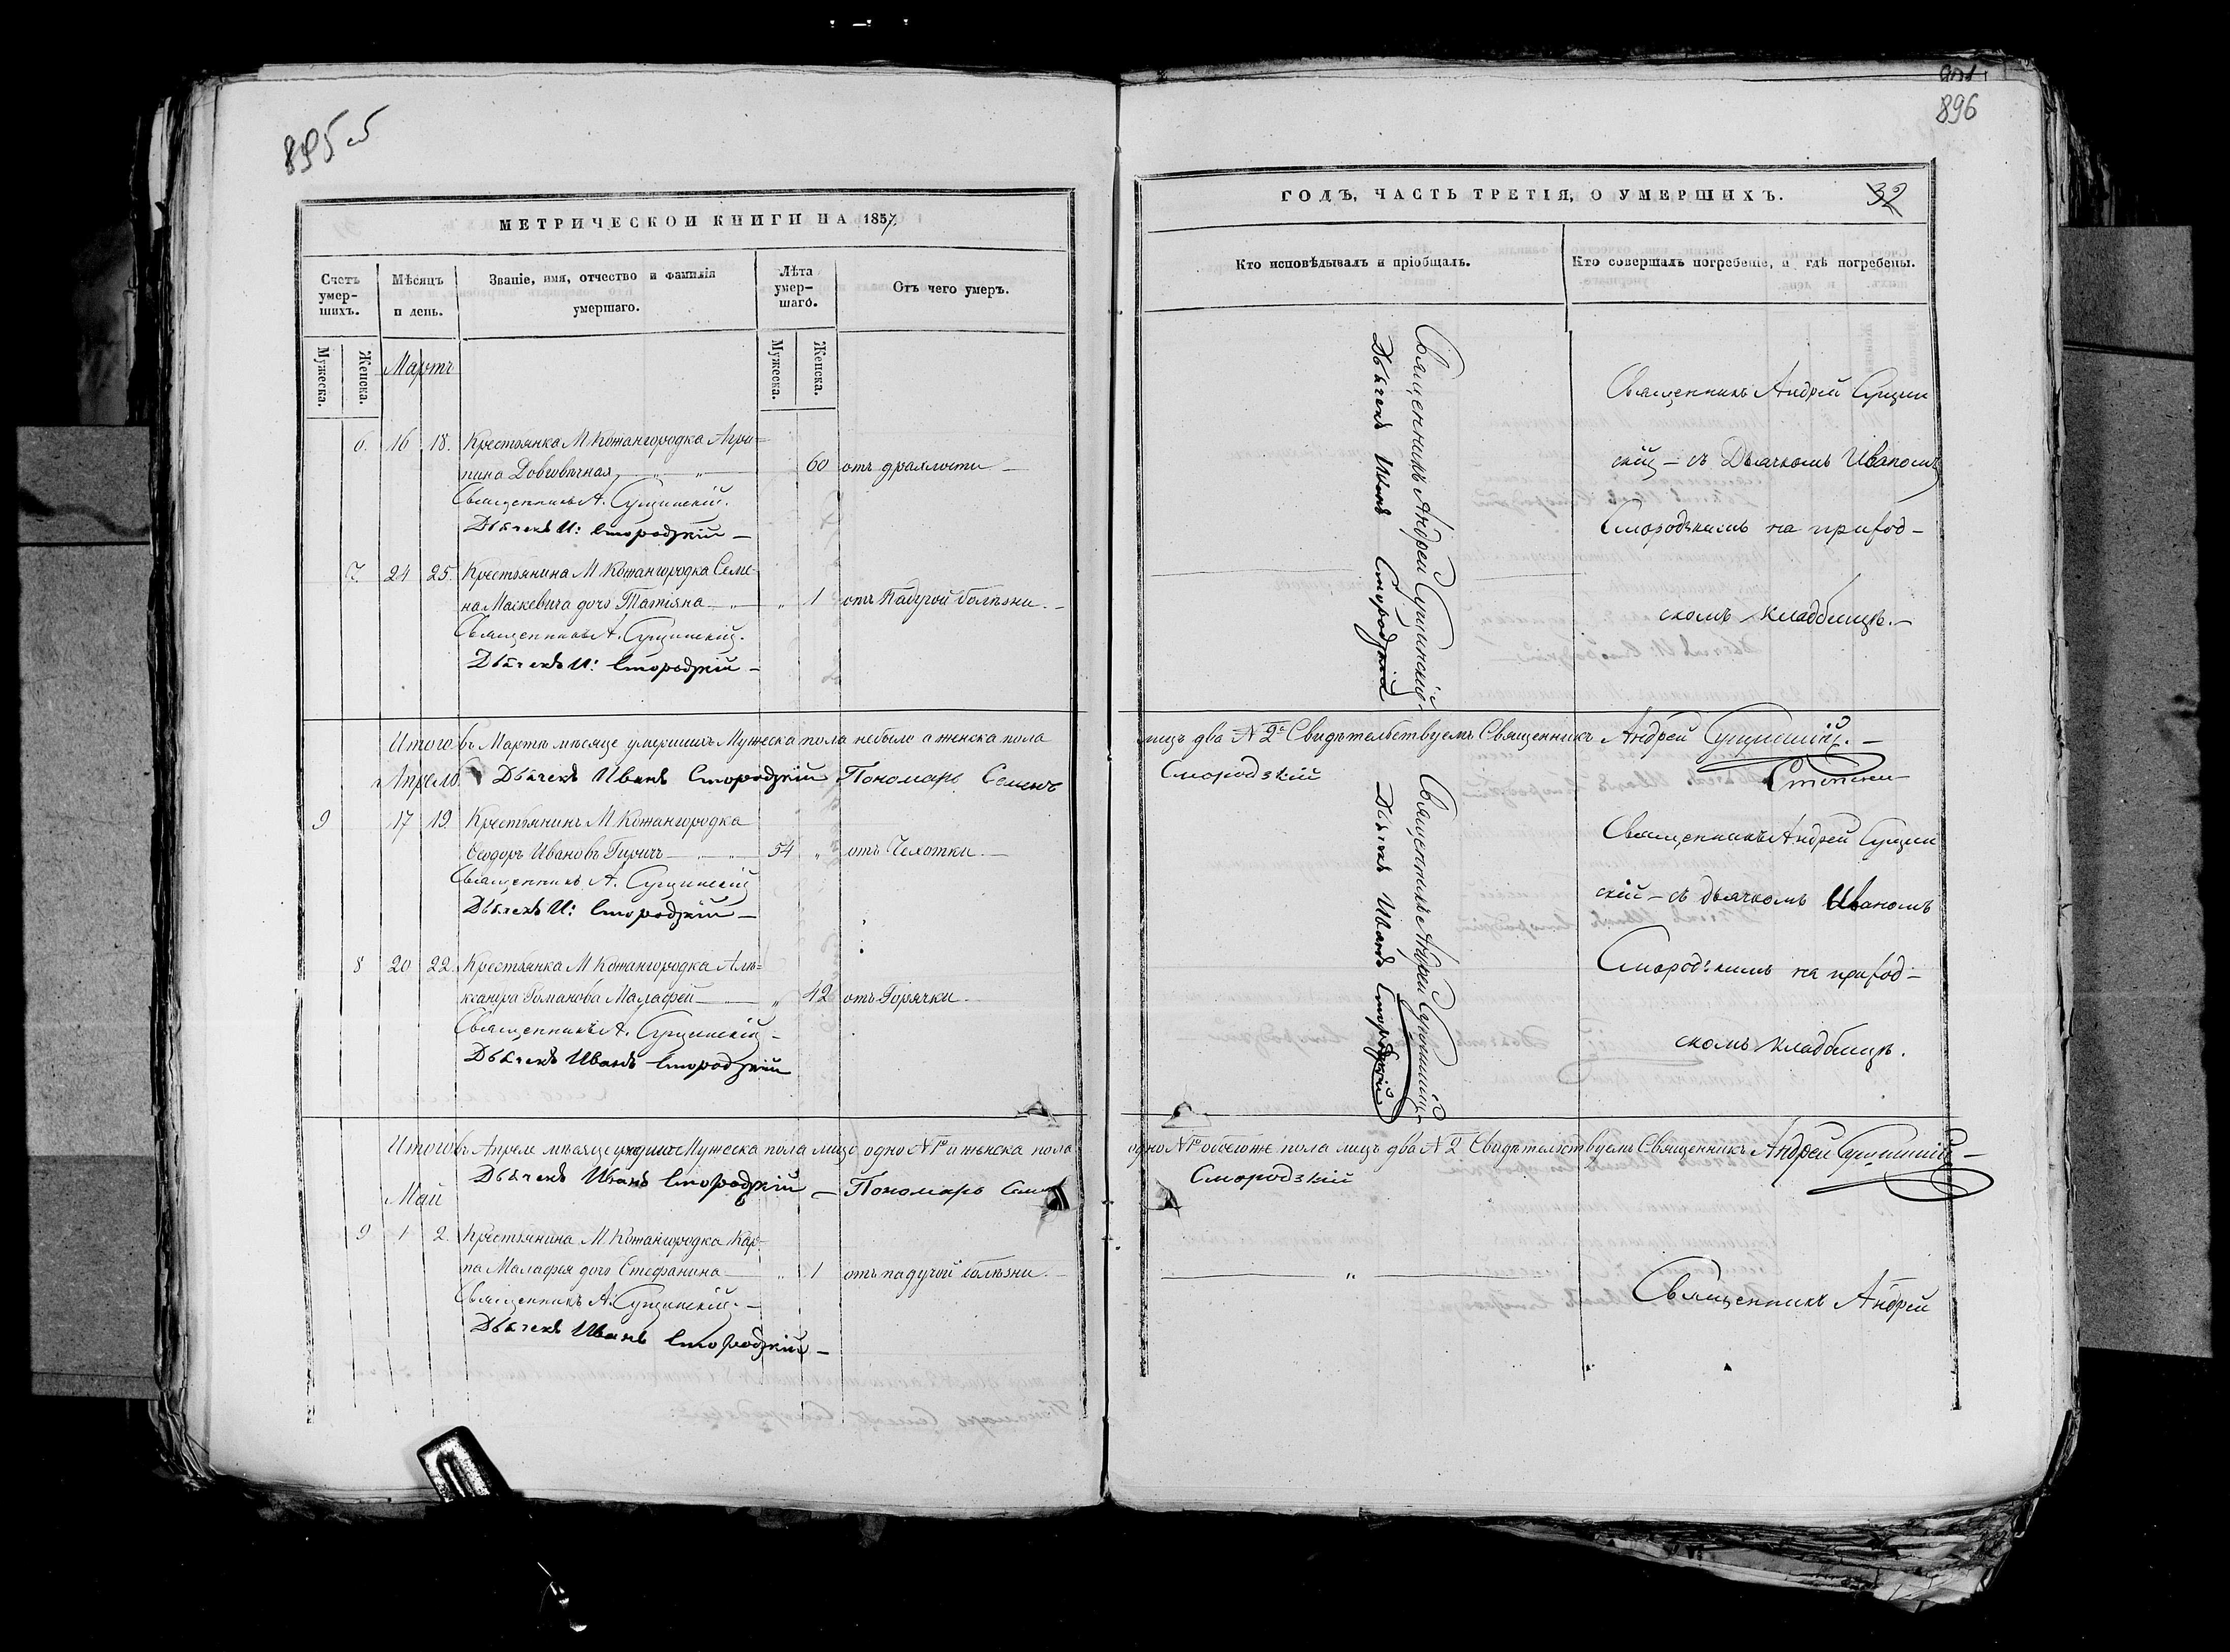 895 об
МЕТРИЧЕСКОЙ КНИГИ НА 1857.
Счетъ умер-шихъ. Мѣсяцъ и день. Званіе, имя, отчество и фамилія умершаго. Лѣта умер-шаго. Отъ чего умеръ.
Мужеска. Женска. Мужеска. Женска.
Мартъ
6. 16 18. Крестьянка М. Кожангородка Агри=
пина Довговѣчная 60 отъ дряхлости —
Священникъ А. Сущинскій.
Дьячекъ И: Смородзкій —
7. 24 25. Крестьянина М Кожангородка Семе-
на Маскевича дочь Татіяна „ 1 отъ Падучой болѣзни. —
Священникъ А. Сущинскій.
Дьячекъ И: Смородзкій —
Итого въ Мартѣ мѣсяце умершихъ Мужеска пола небыло а женска пола
Апрель Дьячекъ Иванъ Смородзкій Пономарь Семенъ
9 17 19. Крестьянинъ М Кожангородка
Ѳеодоръ Ивановъ Гиричъ 54 „ отъ Чехотки. —
Священникъ А. Сущинскій
Дьячекъ И: Смородзкій —
8 20 22. Крестьянка М Кожангородка Алѣ=
ксандра Романова Малафей „ 42 отъ Горячки. —
Священникъ А. Сущинскій —
Дьячекъ Иванъ Смородзкій
Итого въ Апреле мѣсяце умершихъ Мужеска пола лицо одно № 1й а женска пола
Дьячекъ Иванъ Смородзкій — Пономарь
Май
9 1 2. Крестьянина М. Кожангородка Кар-
па Малафея дочь Стефанина „ 1 отъ падучой болѣзни. —
Священникъ А. Сущинскій. —
Дьячекъ Иванъ Смородзкій —
896
ГОДЪ, ЧАСТЬ ТРЕТІЯ, О УМЕРШИХЪ.
32
Кто исповѣдывалъ и пріобщалъ. Кто совершалъ погребеніе, и гдѣ погребены.
Священникъ Андрей Сущинскій
Дьячекъ Иванъ Смородзкій
Священникъ Андрей Сущин
скій — съ Дьячкомъ Иваномъ
Смородзкимъ на приход-
скомъ кладбищѣ. —
лицъ два № 2й Свидѣтельствуемъ Священникъ Андрей Сущинскій. —
Смородзкій
Священникъ Андрей Сущинскій
Дьячекъ Иванъ Смородзкій
Священникъ Андрей Сущин
скій — съ дьячкомъ Иваномъ
Смородзкимъ на приход-
скомъ кладбищѣ.
одно № 1й обоего же пола лицъ два № 2 Свидѣтельствуемъ Священникъ Андрей Сущинскій —
Смородзкій
„
Священникъ Андрей